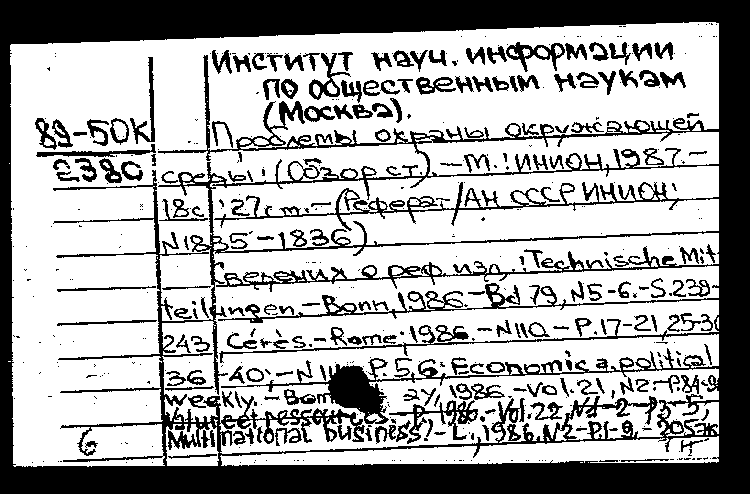 Институт науч. информации
по общественным наукам
(Москва).
89-50К
2380
Проблемы охраны окружающей
среды: (Обзор ст). - М.: ИНИОН, 1987. -
18с.; 27см. - (Реферат / АН СССР, ИНИОН;
N1835-1836).
Сведения о реф. изд.: Technische Mit
teilungen. - Bonn, 1986. - Bd 79, N5-6. - S.239-
243; Cérès. - Rome, 1986. - N110 - P.17-21, 25-30
36 -40; - N P.5,6; Economic a. political
weekly. - Bom ay, 1986 - Vol.21, N2. - P.84-
Nature et ressources. - P., 1986. - Vol.22, N1-2 P3-5;
Multinational business. - L., 1986. N2 - P.1-9. - 205эк
6